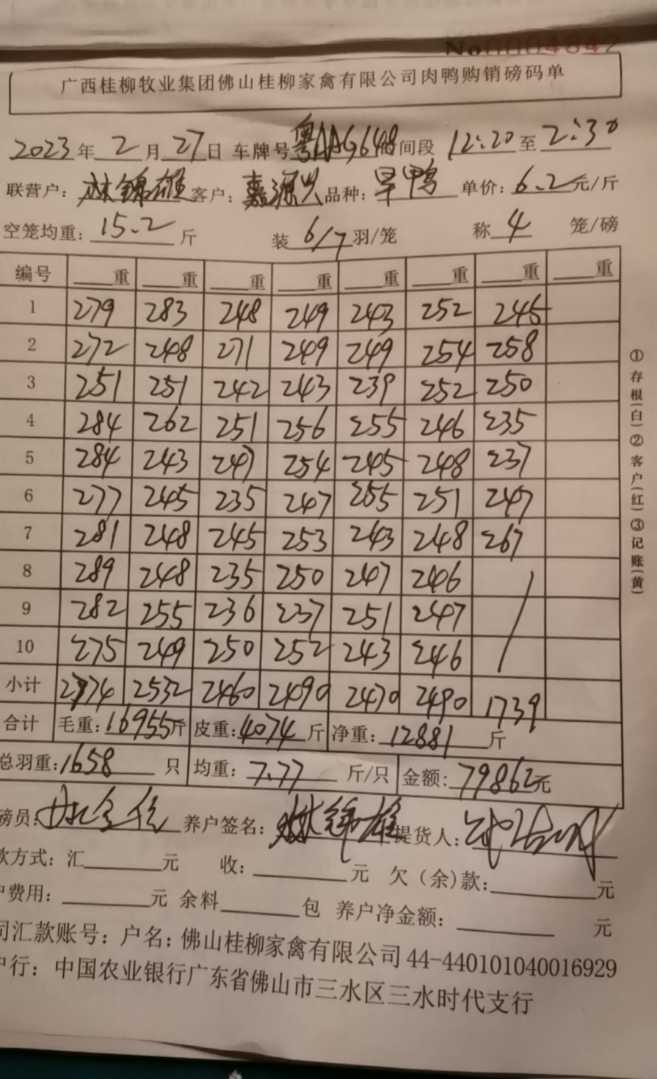 No0004842
广西桂柳牧业集团佛山桂柳家禽有限公司肉鸭购销磅码单
2023年 2月 27日 车牌号 粤 间段 12:20至 2:30
联营户: 林锦雄 客户: 嘉源兴 品种: 旱鸭 单价: 6.2元/斤
空笼均重: 15.2斤 装 6/7羽/笼 称 4 笼/磅
编号 重 重 重 重 重 重 重 重
1 279 283 248 249 243 252 245
2 272 248 271 249 249 254 258
3 251 251 242 243 239 252 250
4 284 262 251 256 255 246 235
5 284 243 247 254 245 248 237
6 277 245 235 247 255 251 247
7 281 248 245 253 243 248 267
8 289 248 235 250 247 246 /
9 282 255 236 237 251 247
10 275 249 250 252 243 246
小计 2774 2532 2460 2490 2470 2490 1739
合计 毛重: 16955斤 皮重: 4074斤 净重: 12881斤
总羽重: 1658 只 均重: 7.77 斤/只 金额: 79862元
磅员: 养户签名: 林锦雄 提货人:
款方式: 汇 元 收: 元 欠(余)款: 元
户费用: 元 余料 包 养户净金额: 元
司汇款账号: 户名: 佛山桂柳家禽有限公司 44-440101040016929
户行: 中国农业银行广东省佛山市三水区三水时代支行
①存根(白)②客户(红)③记账(黄)